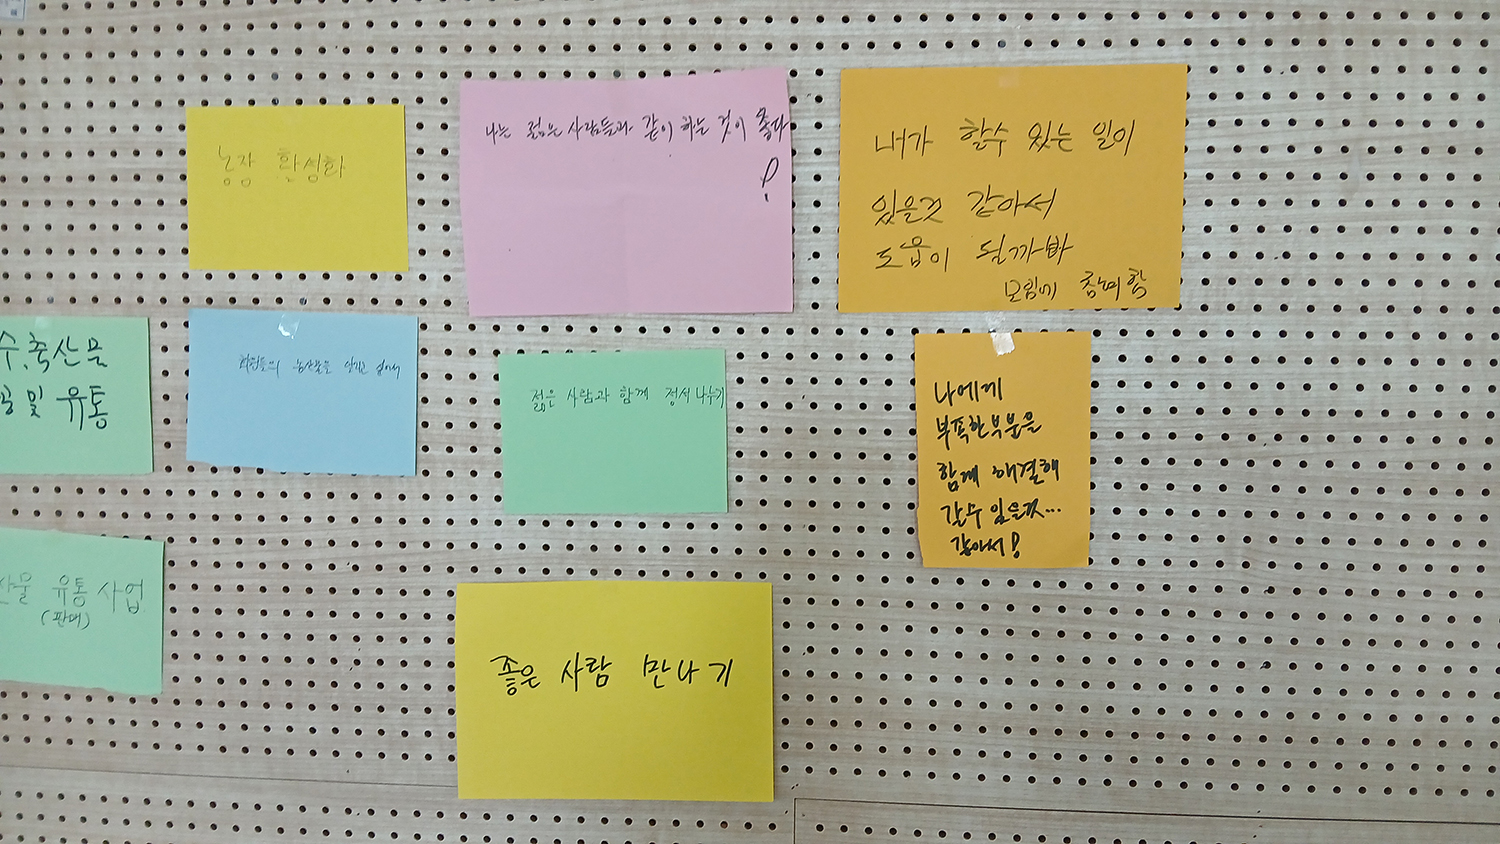 농장 활성화
나는 젊은 사람들과 같이 하는 것이 좋다
!
내가 할수 있는 일이
있을것 같아서
도움이 될까봐
모임에 참여함
수.축산물
및 유통
회원들의 농산물을 싶어서
젊은 사람과 함께 정서 나누기
나에게
부족한부분을
함께 해결해
갈수 있을것...
같아서!
산물 유통 사업
(판매)
좋은 사람 만나기